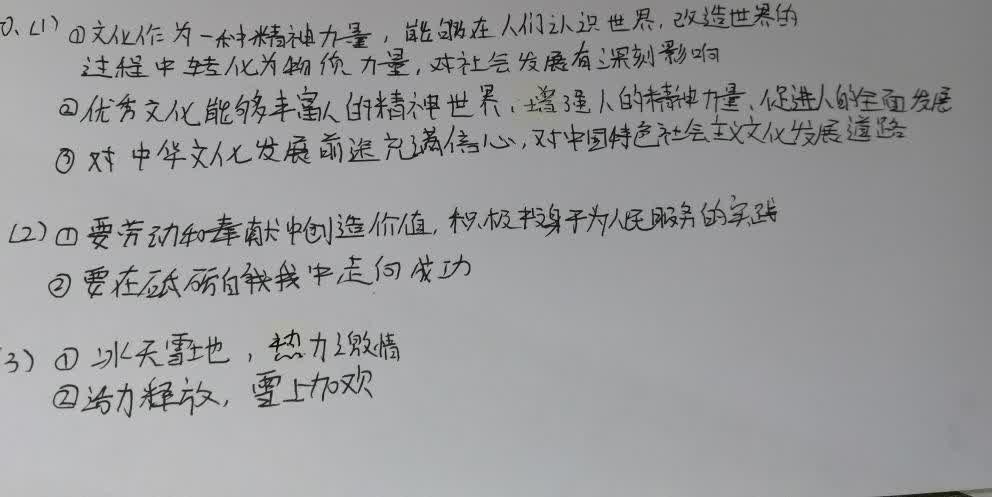 0、(1) ①文化作为一种精神力量，能够在人们认识世界，改造世界的
过程中转化为物质力量，对社会发展有深刻影响
②优秀文化能够丰富人的精神世界、增强人的精神力量、促进人的全面发展
③对中华文化发展前途充满信心，对中国特色社会主义文化发展道路
(2) ①要劳动和奉献中创造价值，积极投身于为人民服务的实践
②要在砥砺自我中走向成功
3) ①冰天雪地，热力激情
②活力释放，雪上加欢